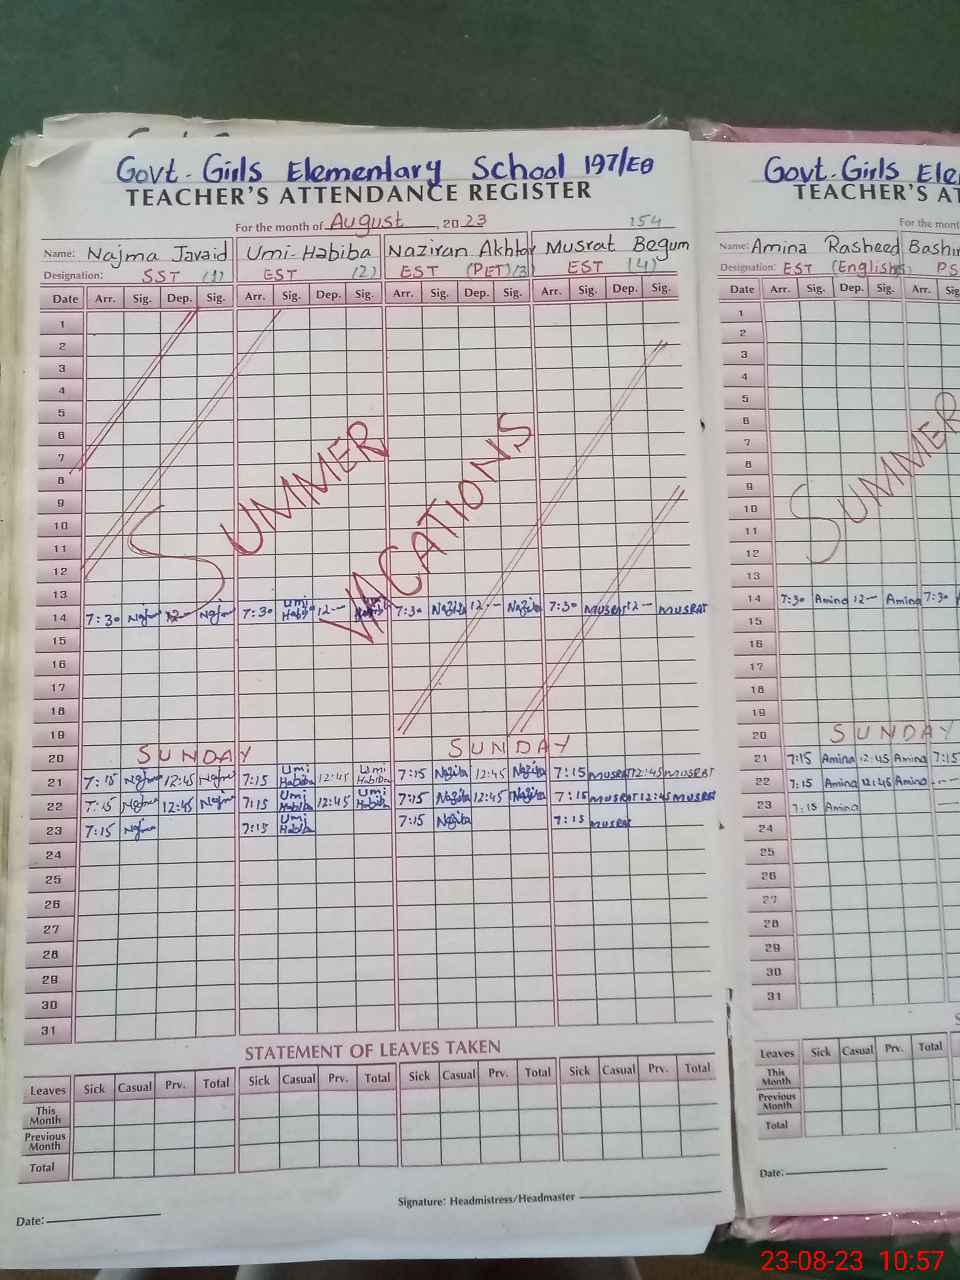 Govt. Girls Elementary School 197/EB
TEACHER'S ATTENDANCE REGISTER
For the month of August, 2023
154
Name: Najma Javaid Umi-Habiba Naziran Akhtar Musrat Begum
Designation: SST (1) EST (2) EST (PET)(3) EST (4)
Date Arr. Sig. Dep. Sig. Arr. Sig. Dep. Sig. Arr. Sig. Dep. Sig. Arr. Sig. Dep. Sig.
1
2
3
4
5
6
7
8
9
10
11
12
13
SUMMER VACATIONS
14 7:30 Najma 12-- Najma 7:30 Umi Habiba 12-- 7:30 Nazira 12-- Nazira 7:30 MUSRAT 12-- MUSRAT
15
16
17
18
19
20 SUNDAY SUNDAY
21 7:15 Najma 12:45 Najma 7:15 Umi Habiba 12:45 Umi Habiba 7:15 Nazira 12:45 Nazira 7:15 MUSRAT 12:45 MUSRAT
22 7:15 Najma 12:45 Najma 7:15 Umi Habiba 12:45 Umi Habiba 7:15 Nazira 12:45 Nazira 7:15 MUSRAT 12:45 MUSRAT
23 7:15 Najma 7:15 Umi Habiba 7:15 Nazira 7:15 MUSRAT
24
25
26
27
28
29
30
31
STATEMENT OF LEAVES TAKEN
Leaves Sick Casual Prv. Total Sick Casual Prv. Total Sick Casual Prv. Total Sick Casual Prv. Total
This Month
Previous Month
Total
Signature: Headmistress/Headmaster
Date:
Govt. Girls Ele
TEACHER'S AT
For the month
Name: Amina Rasheed Bashir
Designation: EST (English) PS
Date Arr. Sig. Dep. Sig. Arr. Sig
1
2
3
4
5
6
7
8
9
10
11
12
13
SUMMER
14 7:30 Amina 12-- Amina 7:30
15
16
17
18
19
20 SUNDAY
21 7:15 Amina 12:45 Amina 7:15
22 7:15 Amina 12:45 Amina
23 7:15 Amina
24
25
26
27
28
29
30
31
S
Leaves Sick Casual Prv. Total
This Month
Previous Month
Total
Date:
23-08-23 10:57